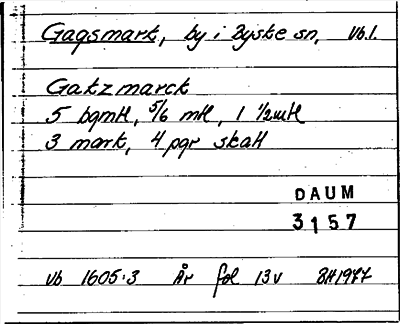 Gagsmark, by i Byske sn, Vb.l.
Gatzmarck
5 bgmH, 5/6 mH, 1 1/2mH
3 mark, 4 pgr skatt
DAUM
3157
Vb 1605:3 År fol 13v BH1977